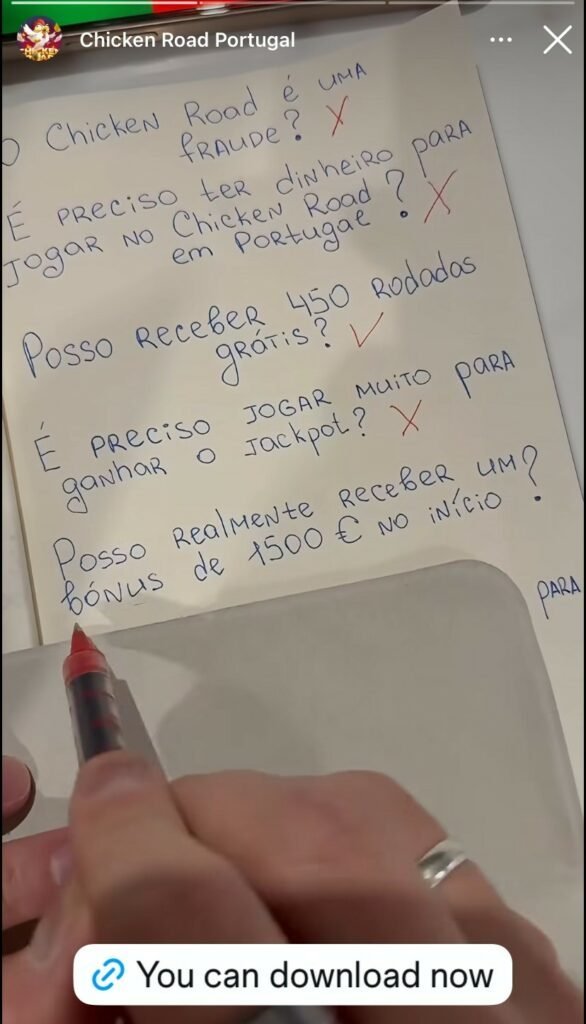 Chicken Road Portugal
O Chicken Road é uma
fraude? X
É preciso ter dinheiro para
jogar no Chicken Road
em Portugal? X
Posso receber 450 rodadas
grátis? ✓
É preciso jogar muito para
ganhar o jackpot? X
Posso realmente receber um
bónus de 1500 € no início?
para
You can download now